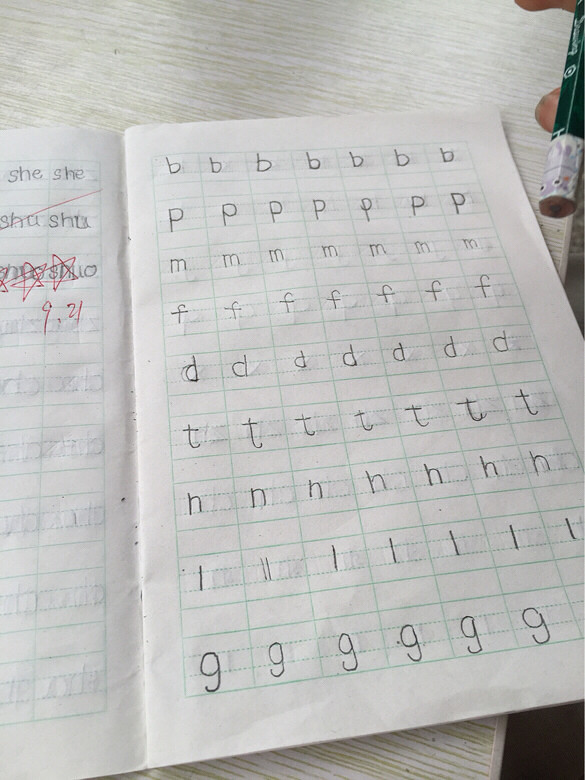 she she
shu shu
shuo shuo
9.21
b b b b b b b
p p p p p p p
m m m m m m m
f f f f f f f
d d d d d d d
t t t t t t t
n n n n n n n
l ll l l l l l
g g g g g g